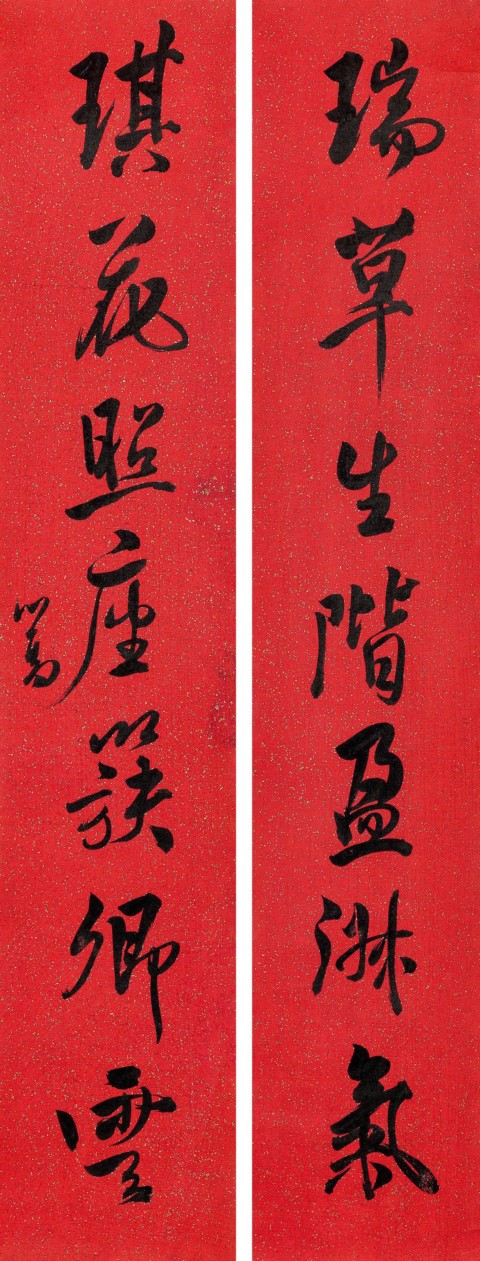 瑞草生階盈淑氣
琪花照座簇卿雲
心畬